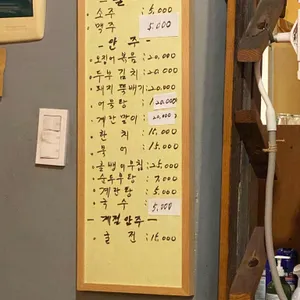 소주 : 5,000
맥주 5,000
- 안주 -
· 오징어볶음 : 20,000
· 두부김치 : 20,000
· 돼지뚝배기 : 20,000
· 어묵탕 : 20,000
· 계란말이 20,000
· 한치 : 15,000
· 먹어 : 15,000
· 골뱅이무침 : 25,000
· 순두부탕 : 7,000
· 계란탕 : 5,000
· 국수 : 5,000
- 계절안주 -
· 굴전 : 15,000